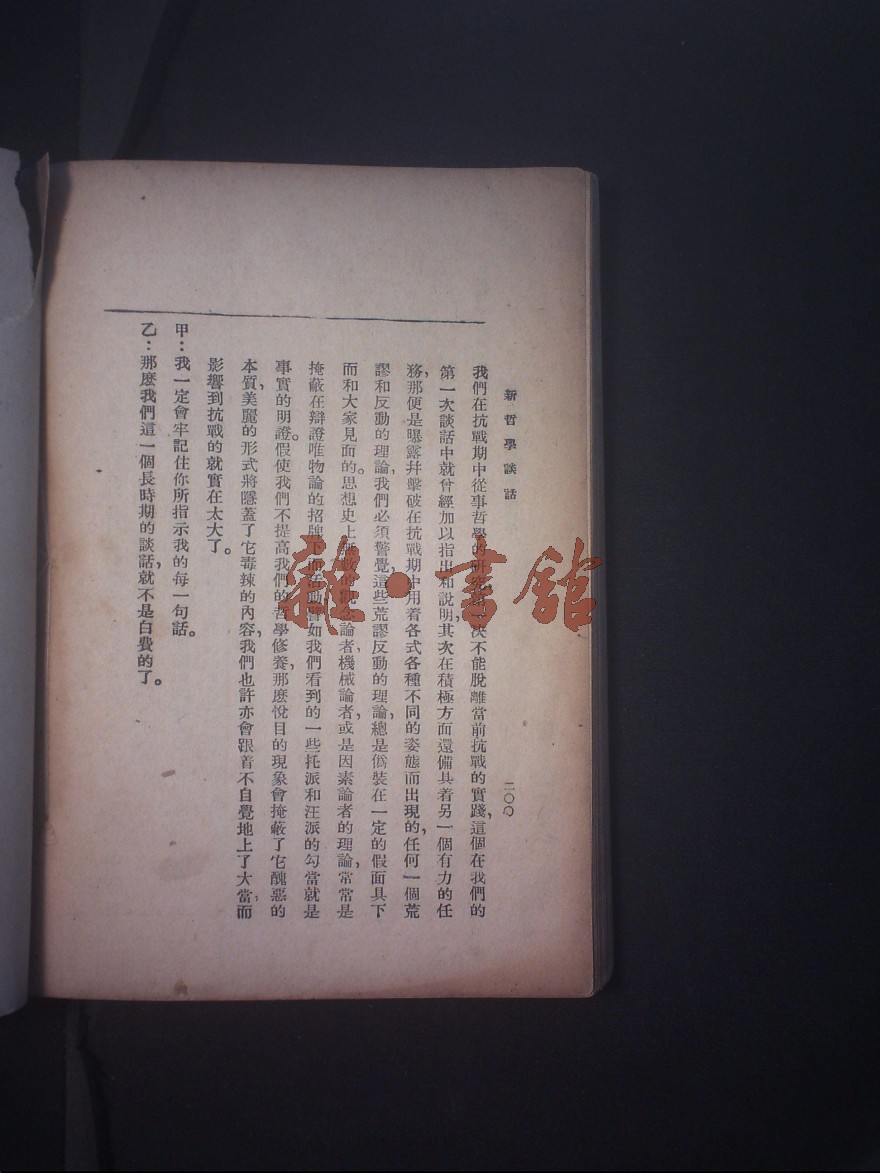 新哲學談話
二〇〇
我們在抗戰期中從事哲學的研究決不能脫離當前抗戰的實踐,這個在我們的
第一次談話中就曾經加以指出和說明,其次在積極方面還備具着另一個有力的任
務,那便是曝露幷擊破在抗戰期中用着各式各種不同的姿態而出現的,任何一個荒
謬和反動的理論,我們必須警覺,這些荒謬反動的理論,總是僞裝在一定的假面具下
而和大家見面的。思想史上無數的觀念論者,機械論者,或是因素論者的理論,常常是
掩蔽在辯證唯物論的招牌下而活動,譬如我們看到的一些托派和汪派的勾當就是
事實的明證。假使我們不提高我們的哲學修養,那麽悅目的現象會掩蔽了它醜惡的
本質,美麗的形式將隱蓋了它毒辣的內容,我們也許亦會跟着不自覺地上了大當,而
影響到抗戰的就實在太大了。
甲:我一定會牢記住你所指示我的每一句話。
乙:那麽我們這一個長時期的談話,就不是白費的了。
雜·書館